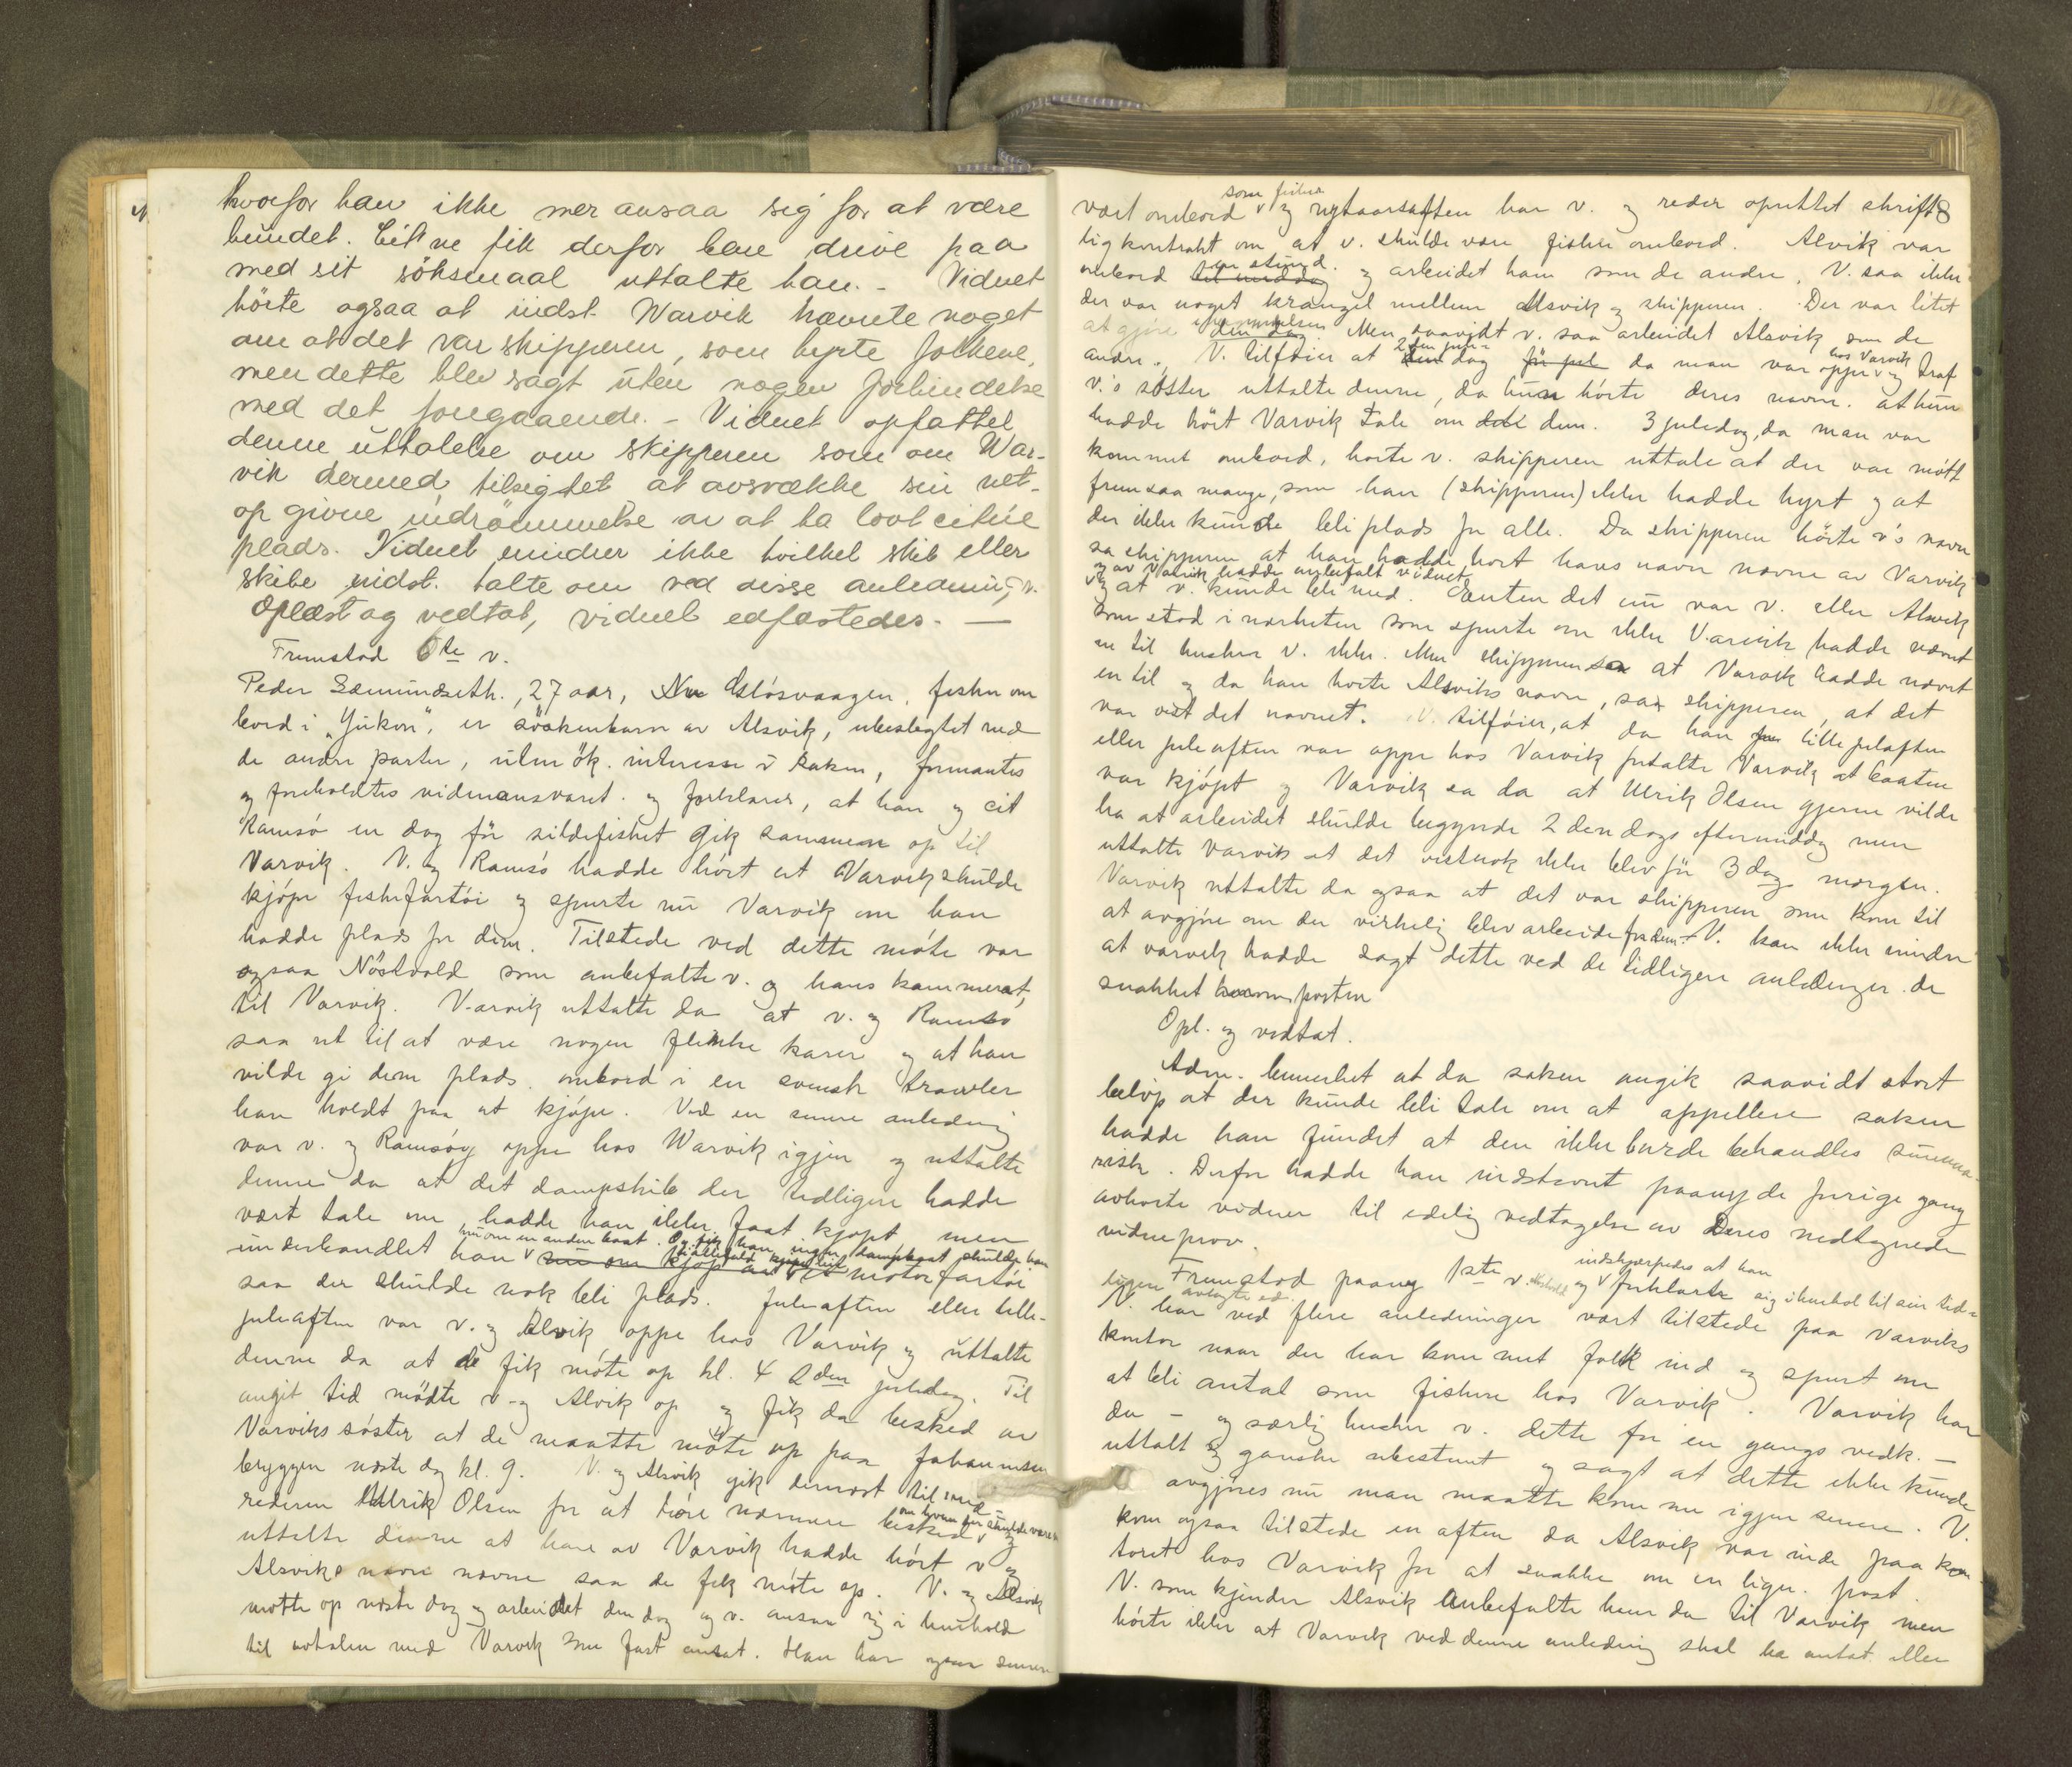 hvorfor han ikke mer ansaa sig for at være
bundet. Cit'ne fik derfor bare drive paa
med sit söksmaal uttalte han. - Vidnet
hörte ogsaa at indst. Warvik nævnte noget
om at det var skipperen, som hyrte folkene,
men dette blev sagt uten nogen forbindelse
med det foregaaende. - Vidnet opfattet
denne uttalelse om skipperen som om War-
vik dermed tilsigtet at avsvække sin net-
op givne indrömmelse av at ha lovt cit'ne
plads. Vidnet minder ikke hvilket skib eller
skibe indst. talte om ved disse anledning
Oplæst og vedtat, vidnet edfæstedes. —
Fremstod 6te v.
Peder Sæmundseth., 27 aar, Glósvaagen, fisker om
bord i "Yukon", er söskenbarn av Alsvik, ubeslegtet med
de andre parter, uten ök. interesse i saken, formantes
og foreholdtes vidneansvaret og forklarer, at han og cit
Ramsö en dag för sildefisket gik sammen op til
Varvik. V. og Ramsó hadde hórt at Varvik skulde
kjöpe fiskefartöi og spurte nu Varvik om han
hadde plads for dem. Tilstede ved dette móte var
ogsaa Nöstvold som anbefalte v. og hans kammerat,
til Varvik. Varvik uttalte da at v. og Ramsó
saa ut til at være nogen flinke karer og at han
vilde gi dem plads ombord i en svensk trawler
han holdt paa at kjöpe. Ved en senere anledning
var v. og Ramsöy oppe hos Warvik igjen og uttalte
denne da at det dampskib der tidligere hadde
vært tale om, hadde han ikke faat kjöpt men
nu om en anden baat. Og fik han ingen dampbaat skulde han
underhandlet han v nu om kjöp av et motorfartöi
saa der skulde nok bli plads. Juleaften eller lille-
juleaften var v. og Alsvik oppe hos Varvik og uttalte
denne da at de fik móte op kl. 4 2den juledag. Til
angit tid mödte v. og Alsvik op og fik da besked av
Varviks söster at de maatte möte op paa Johannesen
bryggen næste dag kl. 9. V. og Alsvik gik dernæst til med-
rederen Ulrik Olsen for at höre nærmere besked v og
om hvem der skulde være
uttalte denne at han av Varvik hadde hórt v og
Alsviks navn nævne saa de fik móte op. V. og Alsvik
mótte op næste dag og arbeidet den dag og v. ansaa sig i henhold
til avtalen med Varvik som fast ansat. Han har ogsaa senere
8
som fisker
vært ombord v og nytaarsaften har v. og reder oprettet skrift
lig kontrakt om at v. skulde være fisker ombord. Alsvik var
en stund.
ombord til middag og arbeidet ham som de andre. V. saa ikke
der var noget krangel mellem Alsvik og skipperen. Der var litet
at gjöre den dag. Men saavidt v. saa arbeidet Alsvik som de
andre. V. tilföier at 2den juledag för jul da man var oppe v og traf
hos Varvik
v.'s söster uttalte denne, da hun hórte deres navne. at hun
hadde hört Varvik tale om dem. 3 juledag, da man var
kommet ombord, hórte v. skipperen uttale at der var mótt
frem saa mange, som han (skipperen) ikke hadde hyrt og at
der ikke kunde bli plads for alle. Da skipperen hörte v's navn
sa skipperen at han hadde hort hans navn nævne av Varvik
og av Varvik hadde anbefalt vidnet
v og at v. kunde bli med. Enten det nu var v. eller Alsvik
som stod i nærheten som spurte om ikke Varvik hadde nævnt
en til husker v. ikke. Men skipperen sa at Varvik hadde nævnt
en til og da han hörte Alsviks navn, sa skipperen, at det
var vist det navnet. V. tilföier, at da han lille juleaften
eller juleaften var oppe hos Varvik fortalte Varvik at baaten
var kjópt og Varvik sa da at Ulrik Olsen gjerne vilde
ha at arbeidet skulde begynde 2 den dags eftermiddag men
uttalte Varvik at det vistnok ikke blev för 3 dags morgen.
Varvik uttalte da ogsaa at det var skipperen som kom til
at avgjöre om der virkelig blev arbeide for dem. V. kan ikke mindre
at varvik hadde sagt dette ved de tidligere anledninger de
snakket om posten
Opl. og vedtat.
Adm. bemerket at da saken angik saavidt stort
belöp at der kunde bli tale om at appellere saken
hadde han fundet at den ikke burde behandles summa-
risk. Derfor hadde han indstevnt paany de forrige gang
avhörte vidner til edelig vedtagelse av deres nedtegnede
vidneprov.
indskjærpedes at han
Fremstod paany 1ste v. Nöstvold og v forklarte sig i henhold til sin tid-
ligere avlagte ed.
V. har ved flere anledninger vært tilstede paa Varviks
kontor naar der har kommet folk ind og spurt om
at bli antat som fiskere hos Varvik. Varvik har
da - og særlig husker v. dette for en gangs vedk. —
uttalt sig ganske ubestemt og sagt at dette ikke kunde
avgjöres nu man maatte komme igjen senere. V.
kom ogsaa tilstede en aften da Alsvik var inde paa kon-
toret hos Varvik for at snakke om en lign. post.
V. som kjender Alsvik anbefalte ham da til Varvik men
hörte ikke at Varvik ved denne anledning skal ha antat eller